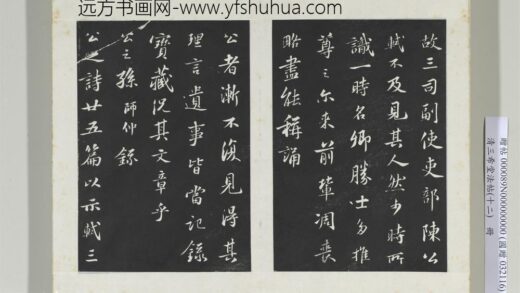 远方书画网-www.yfshuhua.com
故三司副使吏部陳公
軾不及見其人然少時所
識一時名卿勝士多推
尊之尔来前輩凋喪
略盡能稱誦
公者漸不復見得其
理言遺事皆當記錄
寶藏況其文章乎
公之孫師仲錄
公之詩廿五篇以示軾三
贈帖 000089N000000000 (國贈 032116)
清三希堂法帖(十二) 冊